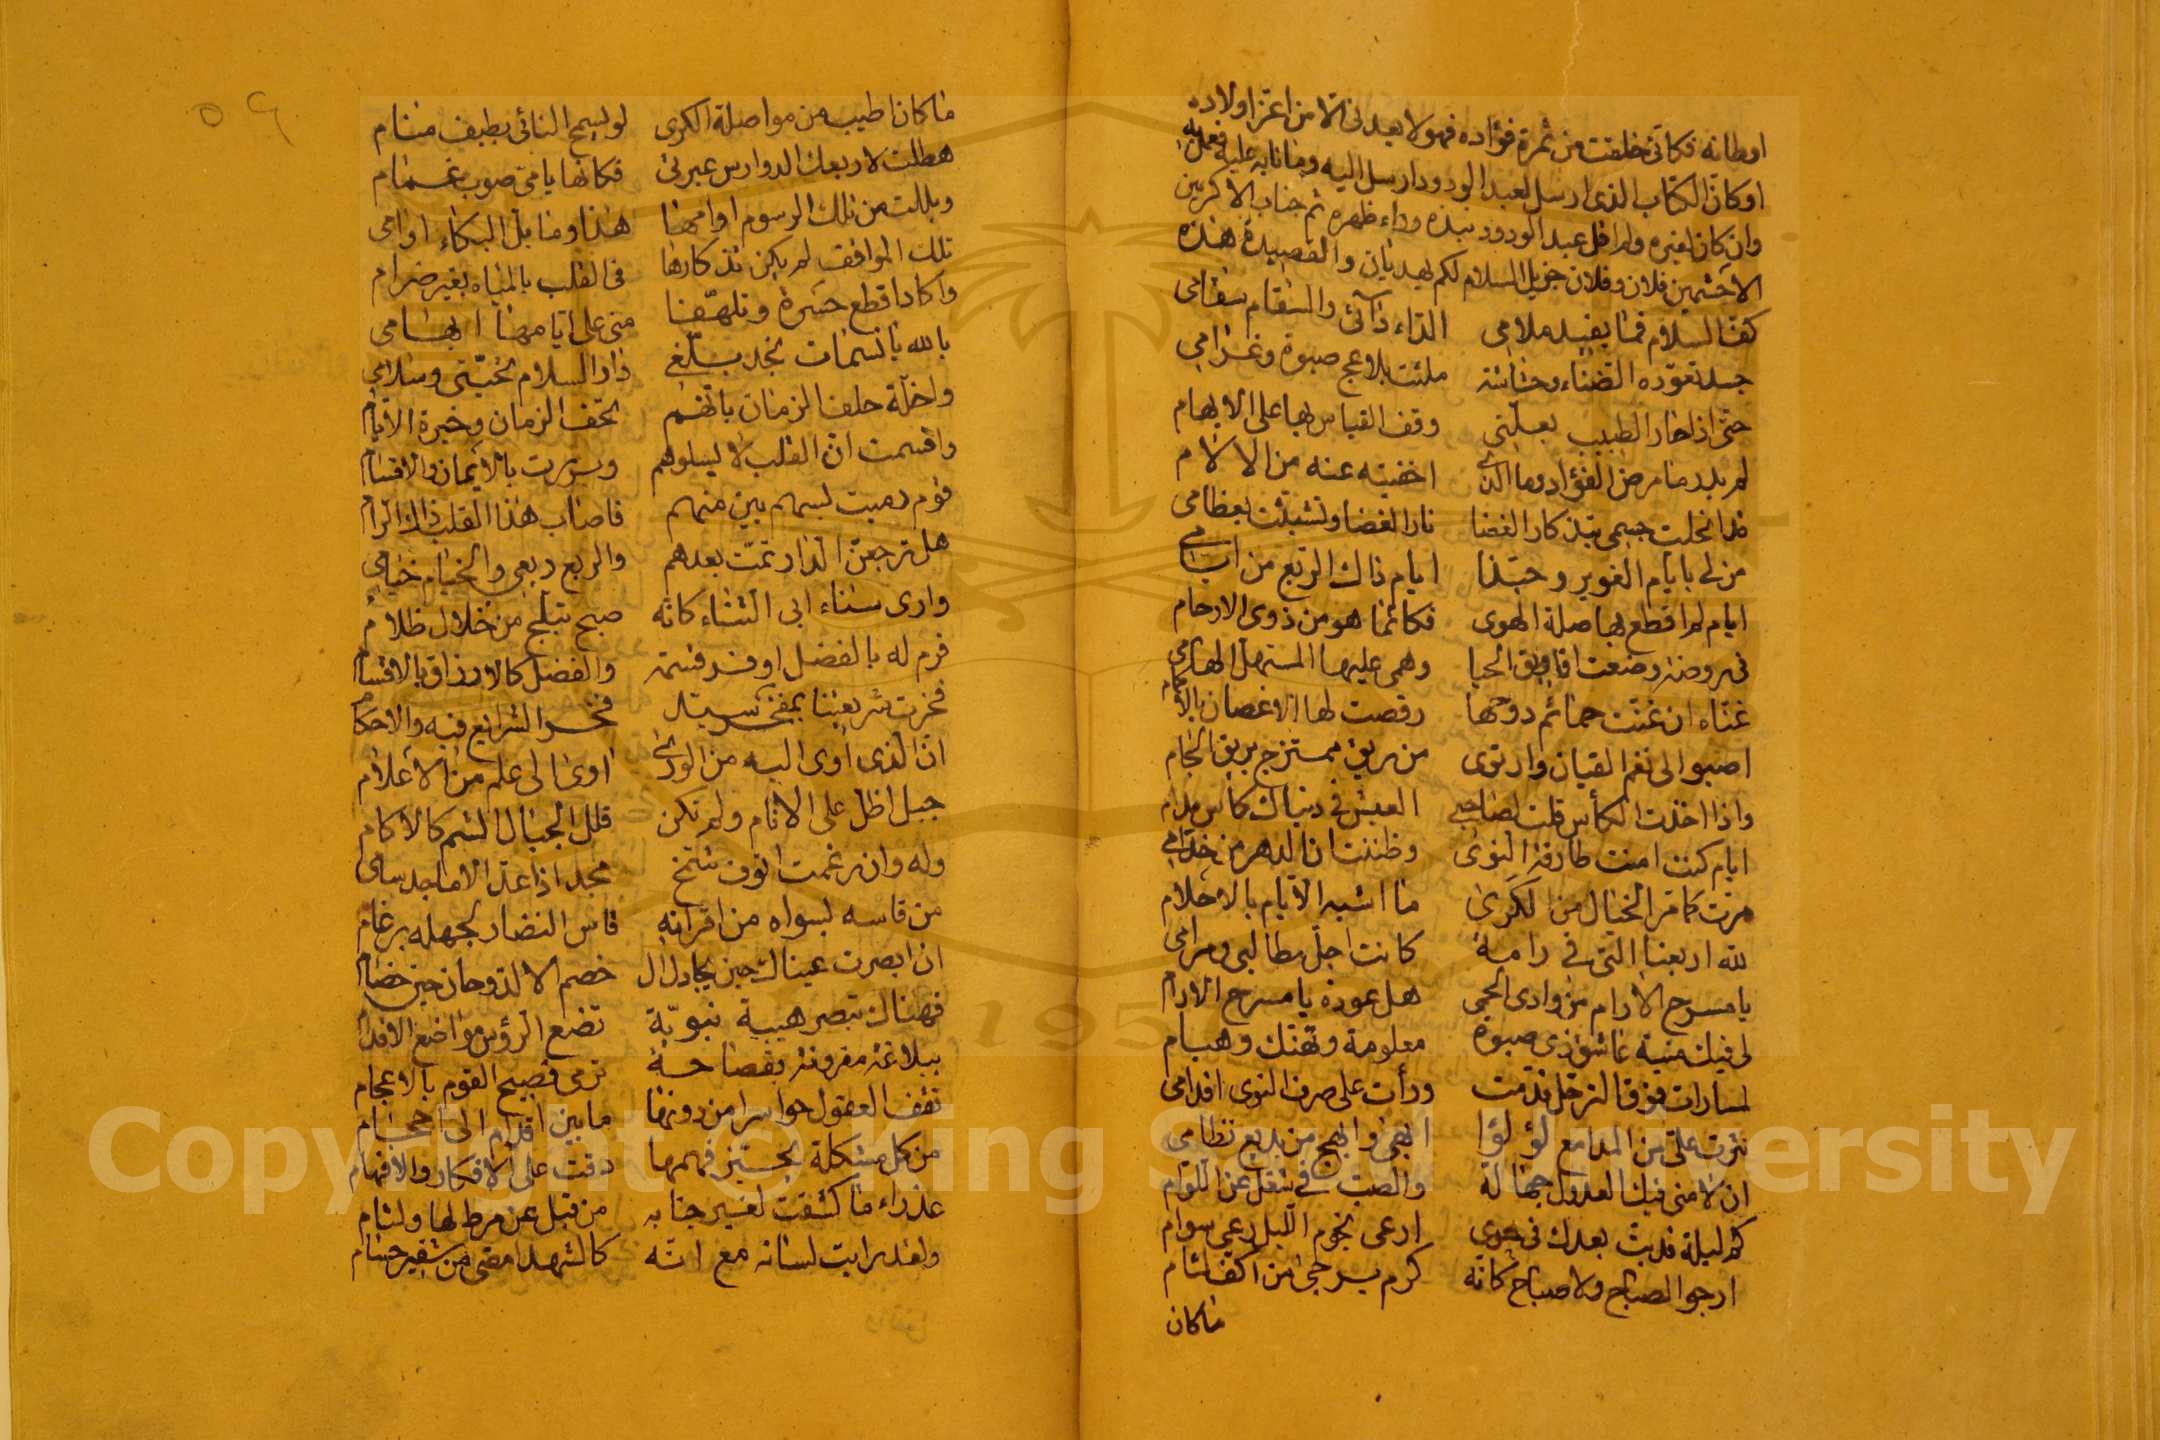 اوطانه فكانى خلفت من ثمرة فؤاده فهو لا يعدنى الا من اعز اولاده
او كان الكتاب الذى ارسل لعبد الودود ارسل اليه وما نابه عليه
وان كان لغيره ولم اقل عبد الودود نبذه وراء ظهره ثم جناب الاكرمين
الاحشمين فلان وفلان جزيل السلام لكم يهديان والقصيدة هذه
كف السلام فما يفيد ملامى الداء دآئى والسقام سقامى
جسد تعوّده الضناء وحشاشة ملئت بلاعج صبوة وغرامى
حتى اذا حار الطبيب بعلّتى وقف القياس بها على الابهام
لم يدر ما مرض الفؤاد وما الذى اخفيته عنه من الالام
قد انحلت جسمى بتذكار الغضا نار الغضا وتشبثت بعظامى
من لى بايام الغوير وحبّذا ايام ذاك الربع من ايام
ايام لم اقطع بها صلة الهوى فكانما هو من ذوى الارحام
فى روضة رضعت افاويق الحيا وهمى عليها المستهل الهامى
غنّاء ان غنّت حمائم دوحها رقصت لها الاغصان بالاكمام
اصبو الى نغم القيان وارتوى من ريق ممتزج بريق الجام
واذا اخذت الكأس قلت لصاحبى العيش فى دنياك كأس مدام
ايام كنت امنت طارقة النوى وظننت ان الدهر من خدّامى
مرّت كما مرّ الخيال من الكرى ما اشبه الايام بالاحلام
لله اربعنا التى فى رامة كانت اجلّ مطالبى ومرامى
يا مسرح الارام من وادى الحمى هل عودة يا مسرح الارام
لى فيك منية عاشق ذى صبوة معلومة وتهتك وهيام
لما رات فوق الترحل قدّمت ورأت على صرف النوى اقدامى
نثرت علىّ من المدامع لؤلؤا ابهى وابهج من بديع نظامى
ان لامنى فيك العذول جهالة والصبّ فى شغل عن اللوام
كم ليلة قد بتّ بعدك فى جوى ارعى نجوم الليل رعى سوام
ارجو الصباح ولا صباح كانه كرم يرجى من اكف لئام
ماكان
ما كان اطيب من مواصلة الكرى لو يسمح النائى بطيف منام
هطلت لاربعك الدوارس عبرتى فكانها يا مىّ صوب غمام
وبللت من تلك الرسوم اوامها هذا وما بلّ البكاء اوامى
تلك المواقف لم يكن تذكارها فى القلب بالمياه بغير ضرام
واكاد اقطع حسرة وتلهّفا منى على ايامها ابهامى
بالله يا نسمات نجد بلّغى دار السلام تحيّتى وسلامى
واخلّة حلف الزمان بانهم تحف الزمان وخيرة الايام
واقسمت ان القلب لا يسلوهم وبررت بالايمان والاقسام
قوم رميت بسهم بين منهم فاصاب هذا القلب ذاك الرام
هل ترجعن الدار تمّت بعدهم والربع ربعى والخيام خيامى
وارى سناء ابى الثناء كانه صبح تبلّج من خلال ظلام
قرم له بالفضل اوفر قسمة والفضل كالارزاق بالاقسام
فخرت شريعتنا بمفخر سيد فخر الشرايع فيه والاحكام
ان الذى اوى اليه من الورى اوى الى علم من الاعلام
جبل اظلّ على الانام ولم تكن قلل الجبال الشم كالاكام
وله وان رغمت انوف شمّخ مجد اذا عدّ الاماجد سامى
من قاسه بسواه من اقرانه قاس النضار بجهله برغام
ان ابصرت عيناك حين يجادل ال خصم الالد وحان حين خصام
فهناك تبصر هيبة نبويّة تضع الرؤس مواضع الاقدام
ببلاغة مقرونة بفصاحة ترمى فصيح القوم بالاعجام
تقف العقول حواسرا من دونها ما بين اقدام الى احجام
من كل مشكلة يحيّر فهمها دقت على الافكار والافهام
عذراء ما كشفت لغير جنابه من قبل عن مرط لها ولثام
ولقد رايت لسانه مع انّه كالشهد امضى من شفير حسام